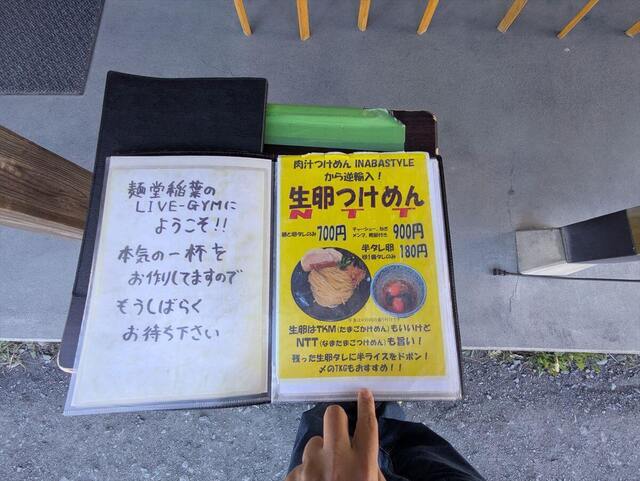 麺堂稲葉の
LIVE-GYMに
ようこそ!!
本気の一杯を
お作りしてますので
もうしばらく
お待ち下さい
肉汁つけめん INABASTYLE
から逆輸入!
生卵つけめん
N T T
麺と卵ダレのみ 700円
チャーシュー、ねぎ
メンマ、機能付き 900円
半タレ卵
卵1個タレのみ 180円
生卵はTKM(たまごかけめん)もいいけど
NTT(なまたまごつけめん)も旨い!
残った生卵ダレに半ライスをドボン!
〆のTKGもおすすめ!!